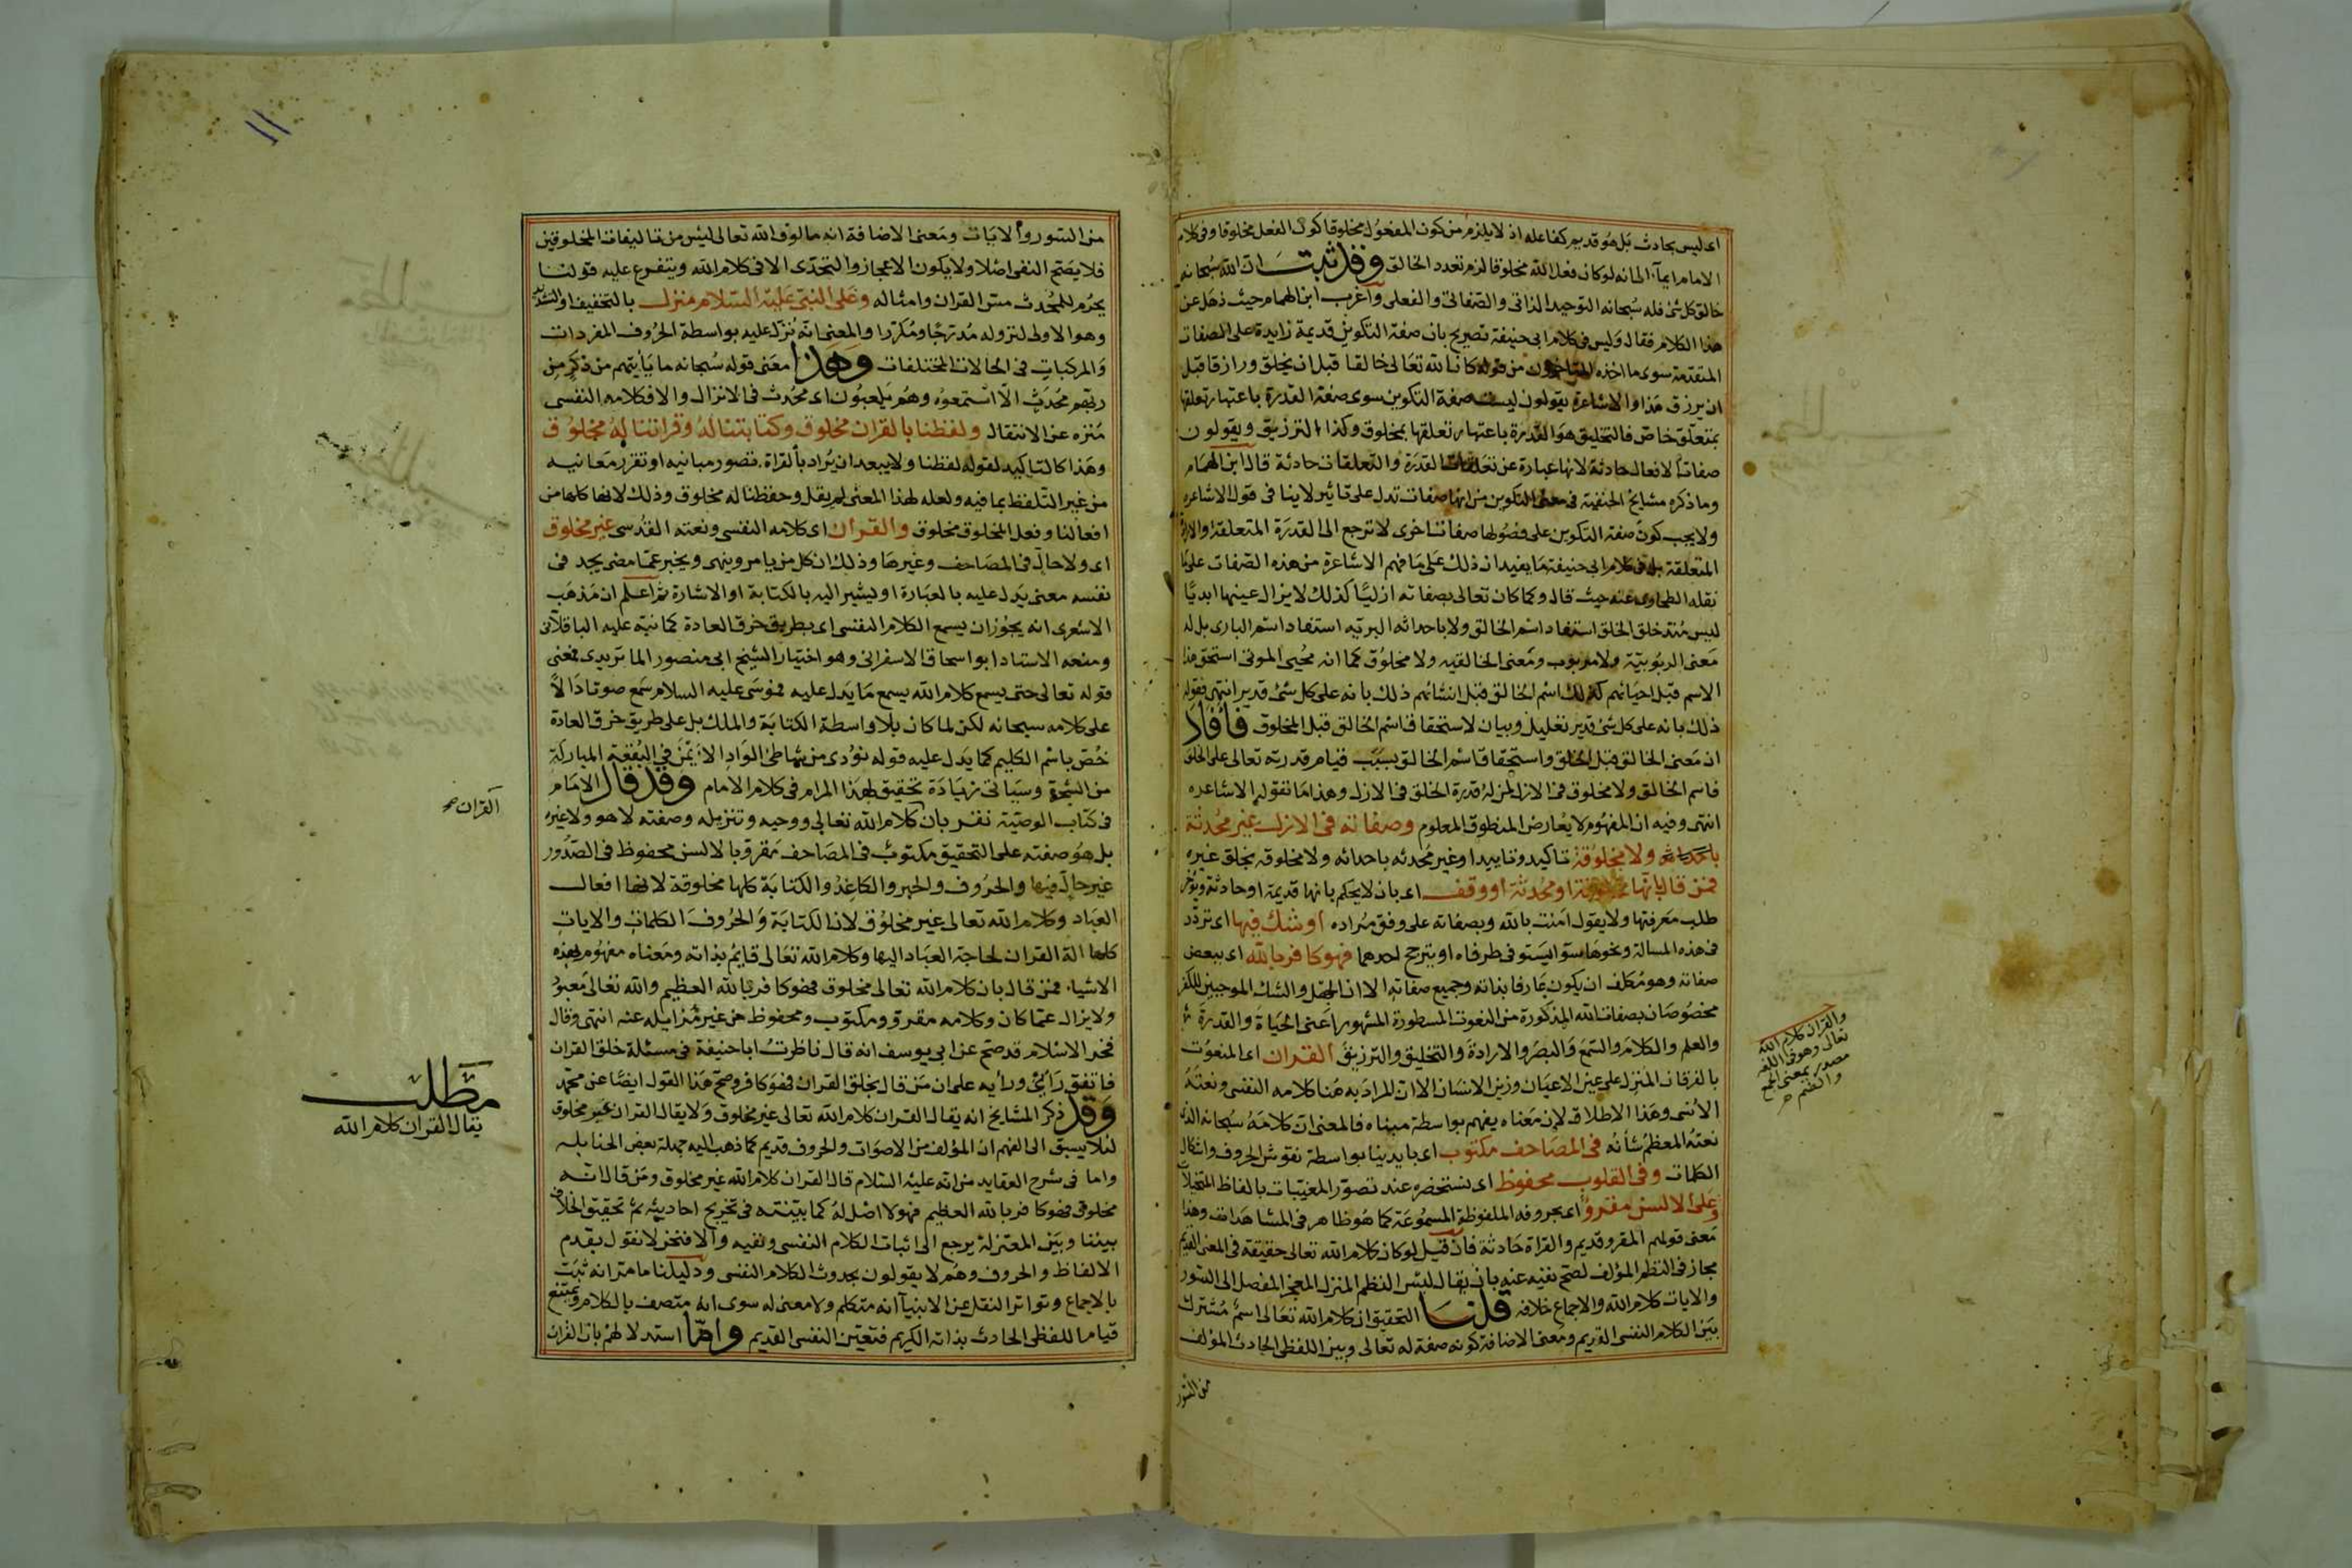 اى ليس بحادث بل هو قديم كفاعله اذ لا يلزم من كون المفعول مخلوقا كون الفعل مخلوقا وفى كلام
الامام ايماء الى انه لو كان فعل الله مخلوقا لزم تعدد الخالق وقد ثبت ان الله سبحانه
خالق كل شئ فله سبحانه التوحيد الذاتى والصفاتى والفعلى واغرب ابن الهمام حيث ذهل عن
هذا الكلام فقال وليس فى كلام ابى حنيفة تصريح بان صفة التكوين قديمة زايدة على الصفات
المتقدمة سوى ما اخذه المتاخرون من قوله كان الله تعالى خالقا قبل ان يخلق ورازقا قبل
ان يرزق هذا والاشاعرة يقولون ليست صفة التكوين سوى صفة القدرة باعتبار تعلقها
بمتعلق خاص فالتخليق هو القدرة باعتبار تعلقها بمخلوق وكذا الترزيق ويقولون
صفات الافعال حادثة لانها عبارة عن تعلقات القدرة والتعلقات حادثة قال ابن الهمام
وما ذكره مشايخ الحنفية فى معنى التكوين من انها صفات تدل على تاثير لا ينافى قول الاشاعرة
ولا يجب كون صفة التكوين على فصولها صفات اخرى لا ترجع الى القدرة المتعلقة والارادة
المتعلقة بل فى كلام ابى حنيفة ما يفيد ان ذلك على ما فهم الاشاعرة من هذه الصفات على ما
نقله الطحاوى عنه حيث قال وكما كان تعالى بصفاته ازليا كذلك لا يزال عينها ابديا
ليس منذ خلق الخلق استفاد اسم الخالق ولا باحداثه البرية استفاد اسم البارى بل له
معنى الربوبية ولا مربوب ومعنى الخالقيه ولا مخلوق كما انه محيى الموتى استحق هذا
الاسم قبل احيائهم كذلك اسم الخالق قبل انشائهم ذلك بانه على كل شئ قدير انتهى فقوله
ذلك بانه على كل شئ قدير تعليل وبيان لاستحقاق اسم الخالق قبل المخلوق فافاد
ان معنى الخالق قبل الخلق واستحقاق اسم الخالق بسبب قيام قدرته تعالى على الخلق
فاسم الخالق ولا مخلوق فى الازل لمن له قدرة الخلق فى الازل وهذا ما تقوله الاشاعره
انتهى وفيه ان المفهوم لا يعارض المنطوق المعلوم وصفاته فى الازل غير محدثة
باحداث ولا مخلوقة تاكيد وتاييد او غير محدثه باحداثه ولا مخلوقه بخلق غيره
فمن قال بانها مخلوقة او محدثة او وقف اى بان لا يحكم بانها قديمة او حادثة ويؤخر
طلب معرفتها ولا يقول امنت بالله وبصفاته على وفق مراده او شك فيها اى تردد
فى هذه المسالة ونحوها سوآ يستوى طرفاه او يترجح احدهما فهو كافر بالله اى ببعض
صفاته وهو مكلف ان يكون عارفا بذاته وجميع صفاته الا ان الجهل والشك الموجبين للكفر
مخصوصان بصفات الله المذكورة من النعوت المسطورة المشهور اعنى الحياة والقدرة
والعلم والكلام والسمع والبصر والارادة والتخليق والترزيق القران اى المنعوت
بالفرقان المنزل على عين الاعيان وزين الانسان الا ان المراد به هنا كلامه النفسى ونعته
الانسى وهذا الاطلاق لان معناه يفهم بواسطة مبناه فالمعنى ان كلامه سبحانه الذى
نعته المعظم شأنه فى المصاحف مكتوب اى بايدينا بواسطة نقوش الحروف واشكال
الكلمات وفى القلوب محفوظ اى نستحضره عند تصور المغيبات بالفاظ المتخيلات
وعلى الالسن مقروء اى بحروفه الملفوظة المسموعة كما هو ظاهر فى المشاهدات وهذا
معنى قولهم المقروء قديم والقراة حادثة فان قيل لو كان كلام الله تعالى حقيقة فى المعنى القديم
مجاز فى النظم المؤلف لصح نفيه عنه بان يقال ليس النظم المنزل المعجز المفصل الى السور
والايات كلام الله والاجماع خلافه قلنا التحقيق ان كلام الله تعالى اسم مشترك
بين الكلام النفسى القديم ومعنى الاضافة كونه صفة له تعالى وبين اللفظى الحادث المؤلف
من السور
والقران كلام الله
تعالى وهو فى اللغه
مصدر بمعنى الجمع
والضم
١١
من السور والايات ومعنى الاضافة انه مالوف الله تعالى ليس من تاليفات المخلوقين
فلا يصح النفى اصلا ولا يكون الاعجاز والتحدى الا فى كلام الله ويتفرع عليه قولنا
يحرم للمحدث مس القران وامثاله وعلى النبى عليه السلام منزل بالتخفيف او التشديد
وهو الاولى لنزوله مدرجا ومكررا والمعنى انه نزل عليه بواسطة الحروف المفردات
والمركبات فى الحالات المختلفات وهذا معنى قوله سبحانه ما يأتيهم من ذكر من
ربهم محدث الا استمعوه وهم يلعبون اى محدث فى الانزال والا فكلامه النفسى
منزه عن الانتقال ولفظنا بالقران مخلوق وكتابتنا له وقراتنا له مخلوق
وهذا كالتاكيد لقوله لفظنا ولا يبعد ان يراد بالقراة تصور مبانيه او تقرر معانيه
من غير التلفظ بما فيه ولعله لهذا المعنى لم يقل وحفظنا له مخلوق وذلك لانها كلها من
افعالنا وفعل المخلوق مخلوق والقران اى كلامه النفسى ونعته القدسى غير مخلوق
اى ولا حال فى المصاحف وغيرها وذلك ان كل من يامر وينهى ويخبر عما مضى يجد فى
نفسه معنى يدل عليه بالعبارة او يشير اليه بالكتابة او الاشارة ثم اعلم ان مذهب
الاشعرى انه يجوز ان يسمع الكلام النفسى اى بطريق خرق العادة كما نبه عليه الباقلانى
ومنعه الاستاد ابو اسحاق الاسفراينى وهو اختيار الشيخ ابى منصور الماتريدى فمعنى
قوله تعالى حتى يسمع كلام الله يسمع ما يدل عليه فموسى عليه السلام سمع صوتا دالا
على كلامه سبحانه لكن لما كان بلا واسطة الكتابة والملك بل على طريق خرق العادة
خص باسم الكليم كما يدل عليه قوله نودى من شاطئ الواد الايمن فى البقعة المباركة
من الشجرة وسياتى زيادة تحقيق لهذا المرام فى كلام الامام وقد قال الامام
فى كتاب الوصية نقر بان كلام الله تعالى ووحيه وتنزيله وصفته لا هو ولا غيره
بل هو صفته على التحقيق مكتوب فى المصاحف مقروء بالالسن محفوظ فى الصدور
غير حال فيها والحروف والحبر والكاغذ والكتابة كلها مخلوقة لانها افعال
العباد وكلام الله تعالى غير مخلوق لان الكتابة والحروف الكلمات والايات
كلها الة القران لحاجة العباد اليها وكلام الله تعالى قايم بذاته ومعناه مفهوم بهذه
الاشياء فمن قال بان كلام الله تعالى مخلوق فهو كافر بالله العظيم والله تعالى معبود
ولا يزال عما كان وكلامه مقروء ومكتوب ومحفوظ من غير مزايله عنه انتهى وقال
فخر الاسلام قد صح عن ابى يوسف انه قال ناظرت ابا حنيفة فى مسئلة خلق القران
فاتفق رأيى ورأيه على ان من قال بخلق القران فهو كافر وصح هذا القول ايضا عن محمد
وقد ذكر المشايخ انه يقال القران كلام الله تعالى غير مخلوق ولا يقال القران غير مخلوق
لئلا يسبق الى الفهم ان المؤلف من الاصوات والحروف قديم كما ذهب اليه جهلة بعض الحنابله
واما فى شرح العقايد من انه عليه السلام قال القران كلام الله غير مخلوق ومن قال انه
مخلوق فهو كافر بالله العظيم فهو لا اصل له كما بينته فى تخريج احاديثه ثم تحقيق الخلاف
بيننا وبين المعتزلة يرجع الى اثبات الكلام النفسى ونفيه والا فنحن لا نقول بقدم
الالفاظ والحروف وهم لا يقولون بحدوث الكلام النفسى ودليلنا ما مر انه ثبت
بالاجماع وتواتر النقل عن الانبيآ انه متكلم ولا معنى له سوى انه متصف بالكلام ويمتنع
قيام اللفظى الحادث بذاته الكريم فتعين النفسى القديم واما استدلالهم بان القران
القران
مطلب
يقال القران كلام الله